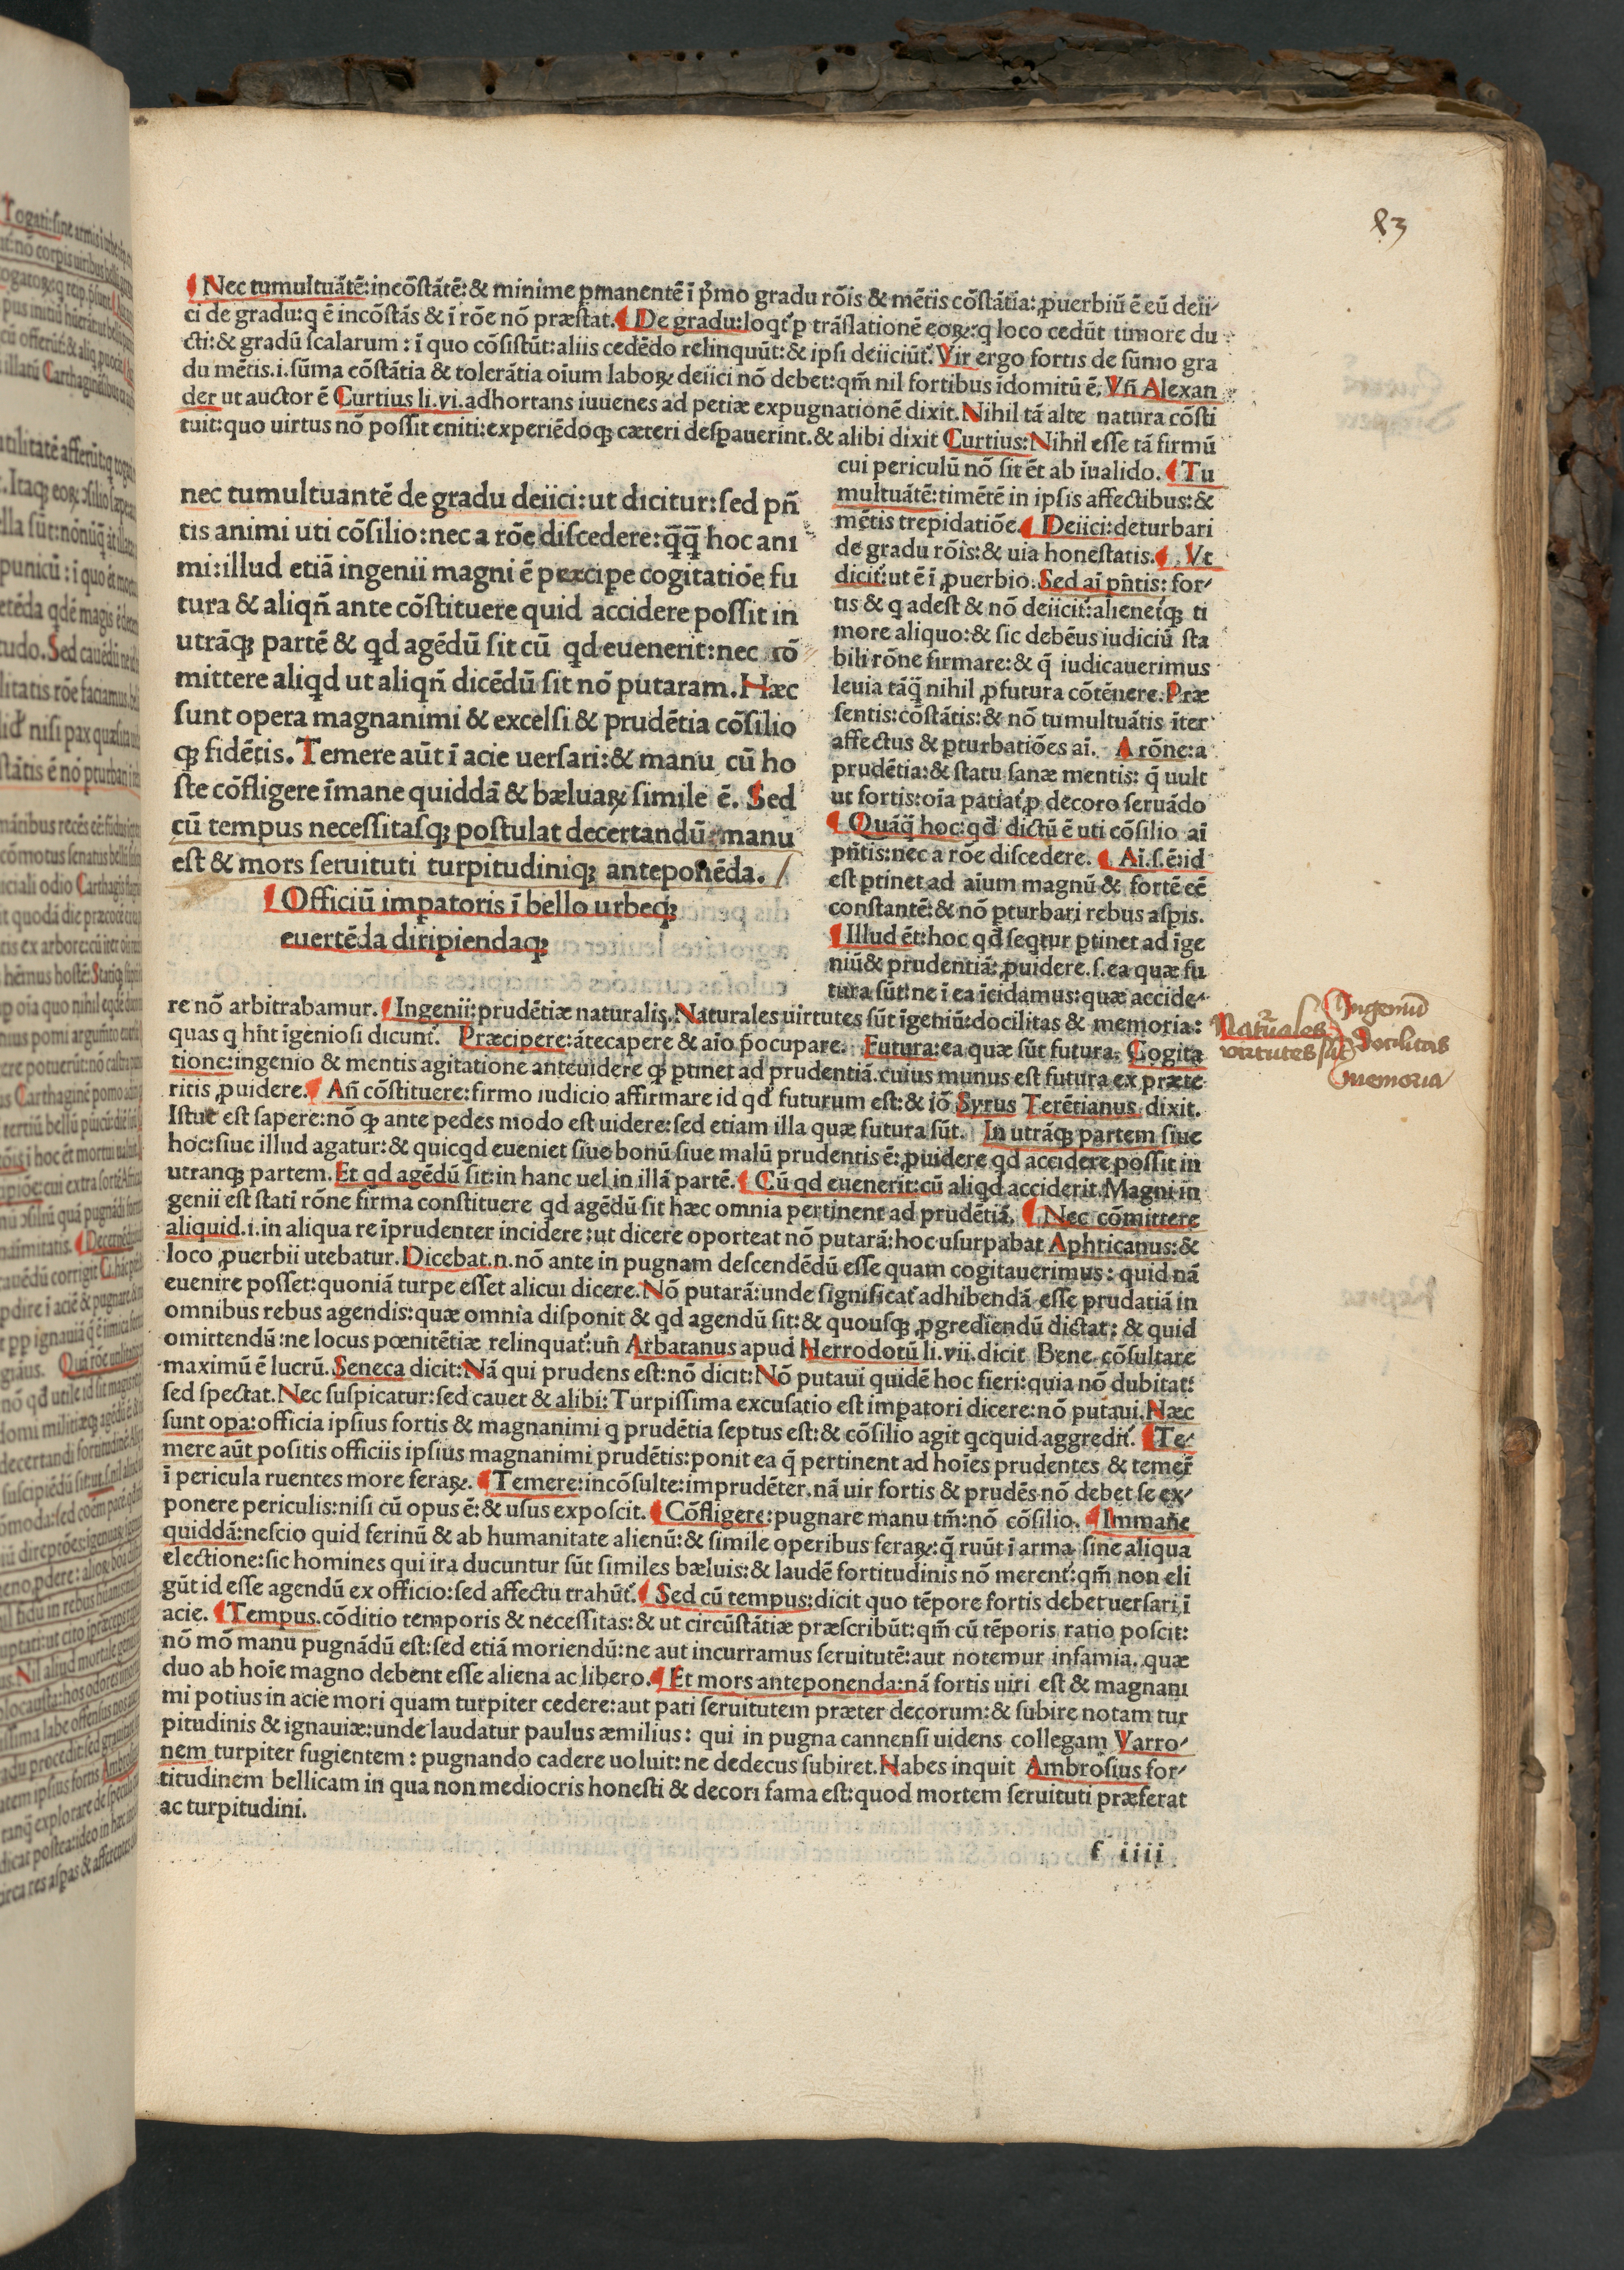 83
¶ Nec tumultuātē: incōstātē: & minime ꝑmanentē ī p̄mo gradu rōis & mētis cōstātia: ꝓuerbiū ē eū deii-
ci de gradu: q ē incōstās & ī rōe nō præstat. ¶ De gradu: loqt᷑ ꝑ trāslationē eoꝝ: q loco cedūt timore du
cti: & gradū scalarum: ī quo cōsistūt: aliis cedēdo relinquūt: & ipsi deiiciūt᷑. Vir ergo fortis de sūmo gra
du mētis .i. sūma cōstātia & tolerātia oīum laboꝝ deiici nō debet: qm̄ nil fortibus īdomitū ē. Vn̄ Alexan
der ut auctor ē Curtius li. vi. adhortans iuuenes ad petiæ expugnationē dixit. Nihil tā alte natura cōsti
tuit: quo uirtus nō possit eniti: experiēdoqꝫ cæteri desꝑauerint. & alibi dixit Curtius: Nihil esse tā firmū
cui periculū nō sit ēt ab īualido. ¶ Tu
multuātē: timētē in ipsis affectibus: &
mētis trepidatiōe. ¶ Deiici: deturbari
de gradu rōis: & uia honestatis. ¶ Vt
dicit᷑: ut ē ī ꝓuerbio. Sed aī pn̄tis: for-
tis & q adest & nō deiicit᷑: alienet᷑qꝫ ti
more aliquo: & sic debēus iudiciū sta
bili rōne firmare: & q̄ iudicauerimus
leuia tāq̄ nihil ꝓfutura cōtēnere. Præ
sentis: cōstātis: & nō tumultuātis īter
affectus & ꝑturbatiōes aī. A rōne: a
prudētia: & statu sanæ mentis: q̄ uult
ut fortis: oīa patiat᷑ ꝑ decoro seruādo
¶ Quāq̄ hoc: qd̄ dictū ē uti cōsilio aī
pn̄tis: nec a rōe discedere. ¶ Aī. s. ē: id
est ꝑtinet ad aīum magnū & fortē eē
constantē: & nō ꝑturbari rebus asꝑis.
¶ Illud ēt: hoc qd̄ seqt᷑ur ꝑtinet ad īge
niū & prudentiā: ꝓuidere. s. ea quæ fu
tura sūt: ne ī ea īcidamus: quæ accide-
nec tumultuantē de gradu deiici: ut dicitur: sed pn̄
tis animi uti cōsilio: nec a rōe discedere: q̄q̄ hoc ani
mi: illud etiā ingenii magni ē præcipe cogitatiōe fu
tura & aliqn̄ ante cōstituere quid accidere possit in
utrāqꝫ partē & qd agēdū sit cū qd euenerit: nec cō
mittere aliqd ut aliqn̄ dicēdū sit nō putaram. Hæc
sunt opera magnanimi & excelsi & prudētia cōsilio
qꝫ fidētis. Temere aūt ī acie uersari: & manu cū ho
ste cōfligere īmane quiddā & bæluaꝝ simile ē. Sed
cū tempus necessitasqꝫ postulat decertandū manu
est & mors seruituti turpitudiniqꝫ anteponēda.
¶ Officiū impatoris ī bello urbeqꝫ
euertēda diripiendaqꝫ
re nō arbitrabamur. ¶ Ingenii: prudētiæ naturalis. Naturales uirtutes sūt īgeniū: docilitas & memoria:
quas q hn̄t īgeniosi dicunt᷑. Præcipere: ātecapere & aīo p̄ocupare. Futura: ea quæ sūt futura. Cogita
tione: ingenio & mentis agitatione anteuidere qꝫ ꝑtinet ad prudentiā. cuius munus est futura ex præte
ritis ꝓuidere. ¶ An̄ cōstituere: firmo iudicio affirmare id qd̄ futurum est: & iō Syrus Terētianus dixit.
Istuc est sapere: nō qꝫ ante pedes modo est uidere: sed etiam illa quæ futura sūt. In utrāqꝫ partem siue
hoc: siue illud agatur: & quicqd eueniet siue bonū siue malū prudentis ē: ꝓuidere qd accidere possit in
utranqꝫ partem. Et qd agēdū sit: in hanc uel in illā partē. ¶ Cū qd euenerit: cū aliqd acciderit. Magni in
genii est stati rōne firma constituere qd agēdū sit hæc omnia pertinent ad prudētiā. ¶ Nec cōmittere
aliquid .i. in aliqua re īprudenter incidere: ut dicere oporteat nō putarā: hoc usurpabat Aphricanus: &
loco ꝓuerbii utebatur. Dicebat .n. nō ante in pugnam descendēdū esse quam cogitauerimus: quid nā
euenire posset: quoniā turpe esset alicui dicere. Nō putarā: unde significat᷑ adhibendā esse prudatiā in
omnibus rebus agendis: quæ omnia disponit & qd agendū sit: & quousqꝫ ꝓgrediendū dictat: & quid
omittendū: ne locus pœnitētiæ relinquat᷑: un̄ Arbatanus apud Herrodotū li. vii. dicit Bene cōsultare
maximū ē lucrū. Seneca dicit: Nā qui prudens est: nō dicit: Nō putaui quidē hoc fieri: quia nō dubitat:
sed spectat. Nec suspicatur: sed cauet & alibi: Turpissima excusatio est imꝑatori dicere: nō putaui. Næc
sunt opa: officia ipsius fortis & magnanimi q prudētia septus est: & cōsilio agit qcquid aggredit᷑. ¶ Te-
mere aūt positis officiis ipsius magnanimi prudētis: ponit ea q̄ pertinent ad hoīes prudentes & temer̄
ī pericula ruentes more feraꝝ. ¶ Temere: incōsulte: imprudēter. nā uir fortis & prudēs nō debet se ex-
ponere periculis: nisi cū opus ē: & usus exposcit. ¶ Cōfligere: pugnare manu tm̄: nō cōsilio. ¶ Immane
quiddā: nescio quid ferinū & ab humanitate alienū: & simile operibus feraꝝ: q̄ ruūt ī arma sine aliqua
electione: sic homines qui ira ducuntur sūt similes bæluis: & laudē fortitudinis nō merent᷑: qm̄ non eli
gūt id esse agendū ex officio: sed affectu trahūt᷑. ¶ Sed cū tempus: dicit quo tēpore fortis debet uersari ī
acie. ¶ Tempus. cōditio temporis & necessitas: & ut circūstātiæ præscribūt: qm̄ cū tēporis ratio poscit:
nō mō manu pugnādū est: sed etiā moriendū: ne aut incurramus seruitutē: aut notemur infamia. quæ
duo ab hoīe magno debent esse aliena ac libero. ¶ Et mors anteponenda: nā fortis uiri est & magnani
mi potius in acie mori quam turpiter cedere: aut pati seruitutem præter decorum: & subire notam tur
pitudinis & ignauiæ: unde laudatur paulus æmilius: qui in pugna cannensi uidens collegam Varro-
nem turpiter fugientem: pugnando cadere uoluit: ne dedecus subiret. Nabes inquit Ambrosius for-
titudinem bellicam in qua non mediocris honesti & decori fama est: quod mortem seruituti præferat
ac turpitudini.
f iiii
Naturales
virtutes sūt
Ingeniū
Docilitas
memoria